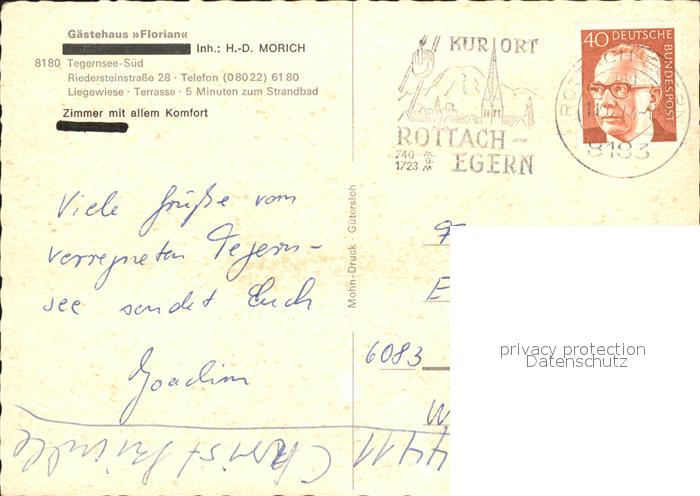 Gästehaus »Florian«
Inh.: H.-D. MORICH
8180 Tegernsee-Süd
Riedersteinstraße 28 · Telefon (0 80 22) 61 80
Liegewiese · Terrasse · 5 Minuten zum Strandbad
Zimmer mit allem Komfort
KURORT
ROTTACH-
740 - M.
EGERN
1723 M
40 DEUTSCHE
BUNDESPOST
8183
Viele Grüße vom
verregneten Tegern-
see sendet Euch
Joachim
Mohn-Druck Gütersloh
F
E
6083
W
privacy protection
Datenschutz
4411